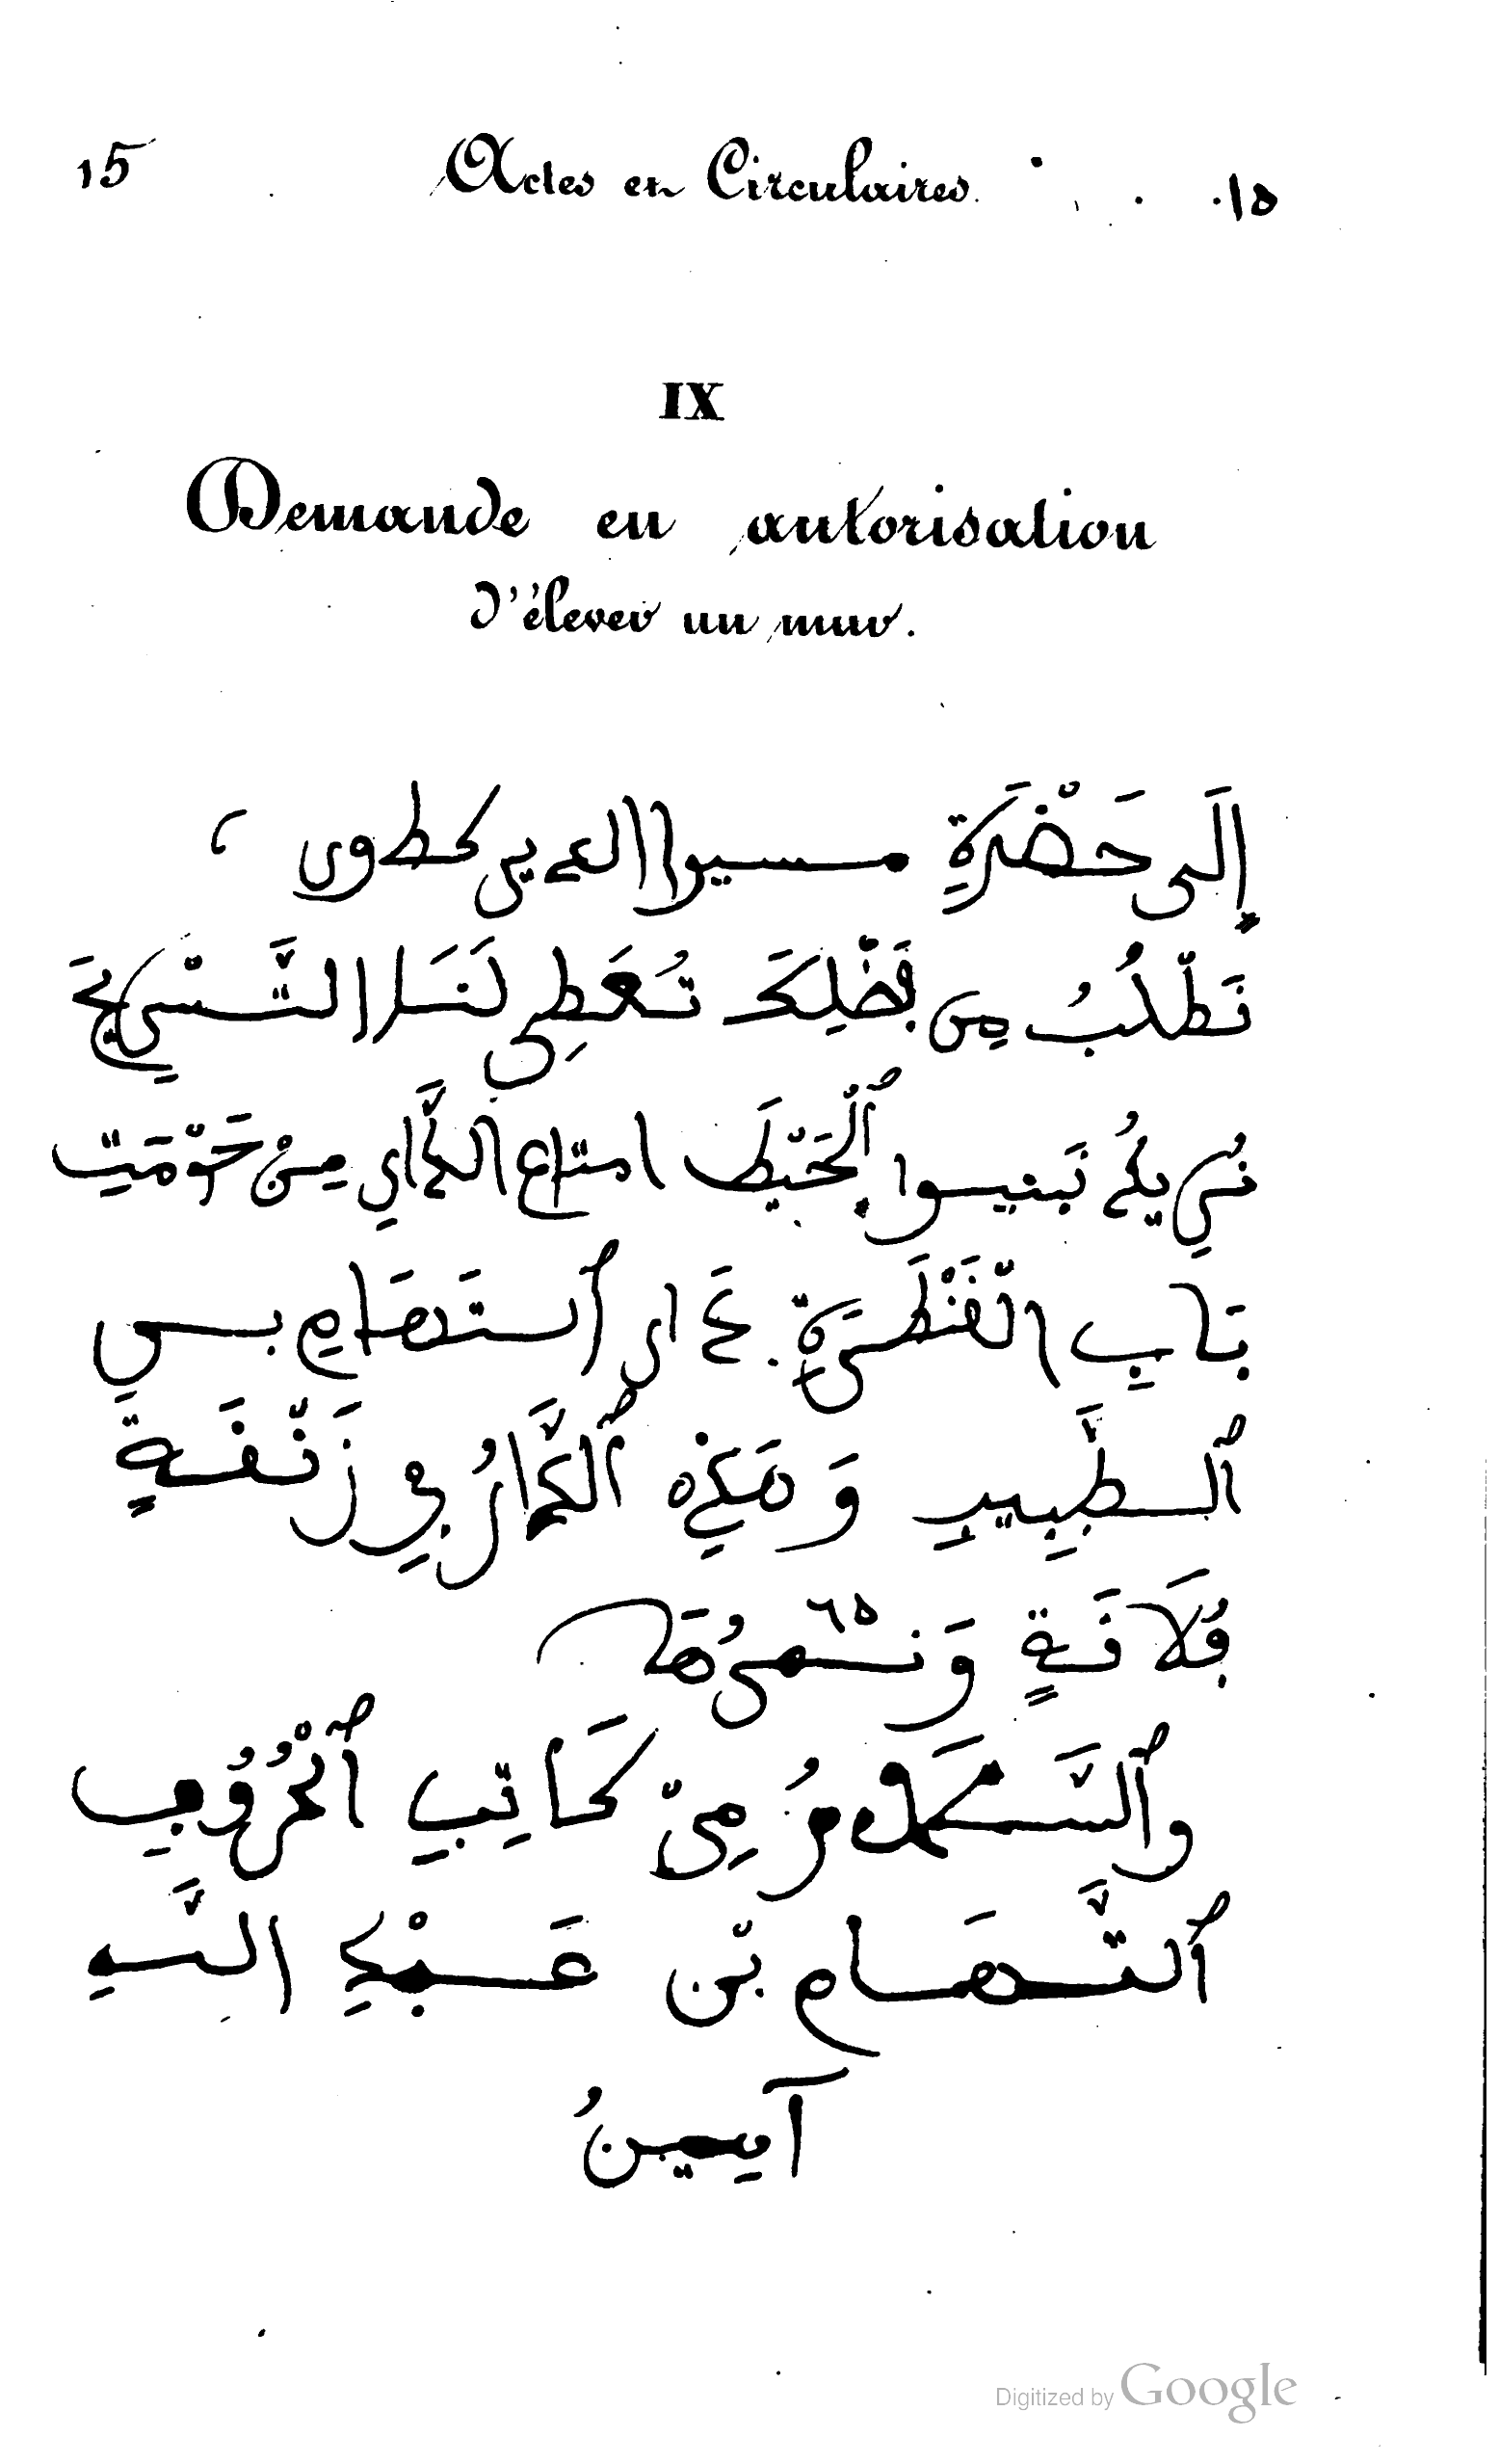 15 Actes en Circulaires. ١٥
IX
Demande en autorisation
d'élever un mur.
إِلَى حَضْرَةِ مسيوا
نَطْلُبُ مِن فَضْلِكَ تُعَطِي لَنَا التَّسْرِيحَ
نُرِيدُ نَبنيوا ٱلْحَيْطَ امتاع الدَّارِ مِنْ حَوْمَتِ
بَابِ القَنْطَرَةِ دَار ٱلتهَامِ بن
ٱلطَّبِيبِ وَهَذِهِ ٱلدَّارُ فِي زَنْقَةِ
فُلَانَةٍ وَنمرُهَا ٦٥
وٱلسَّلَامُ مِنْ كَاتِبِ ٱلحْرُوُفِ
ٱلتَّهَام بْن عَبْدِ اللَّهِ
آمِينُ
Digitized by Google